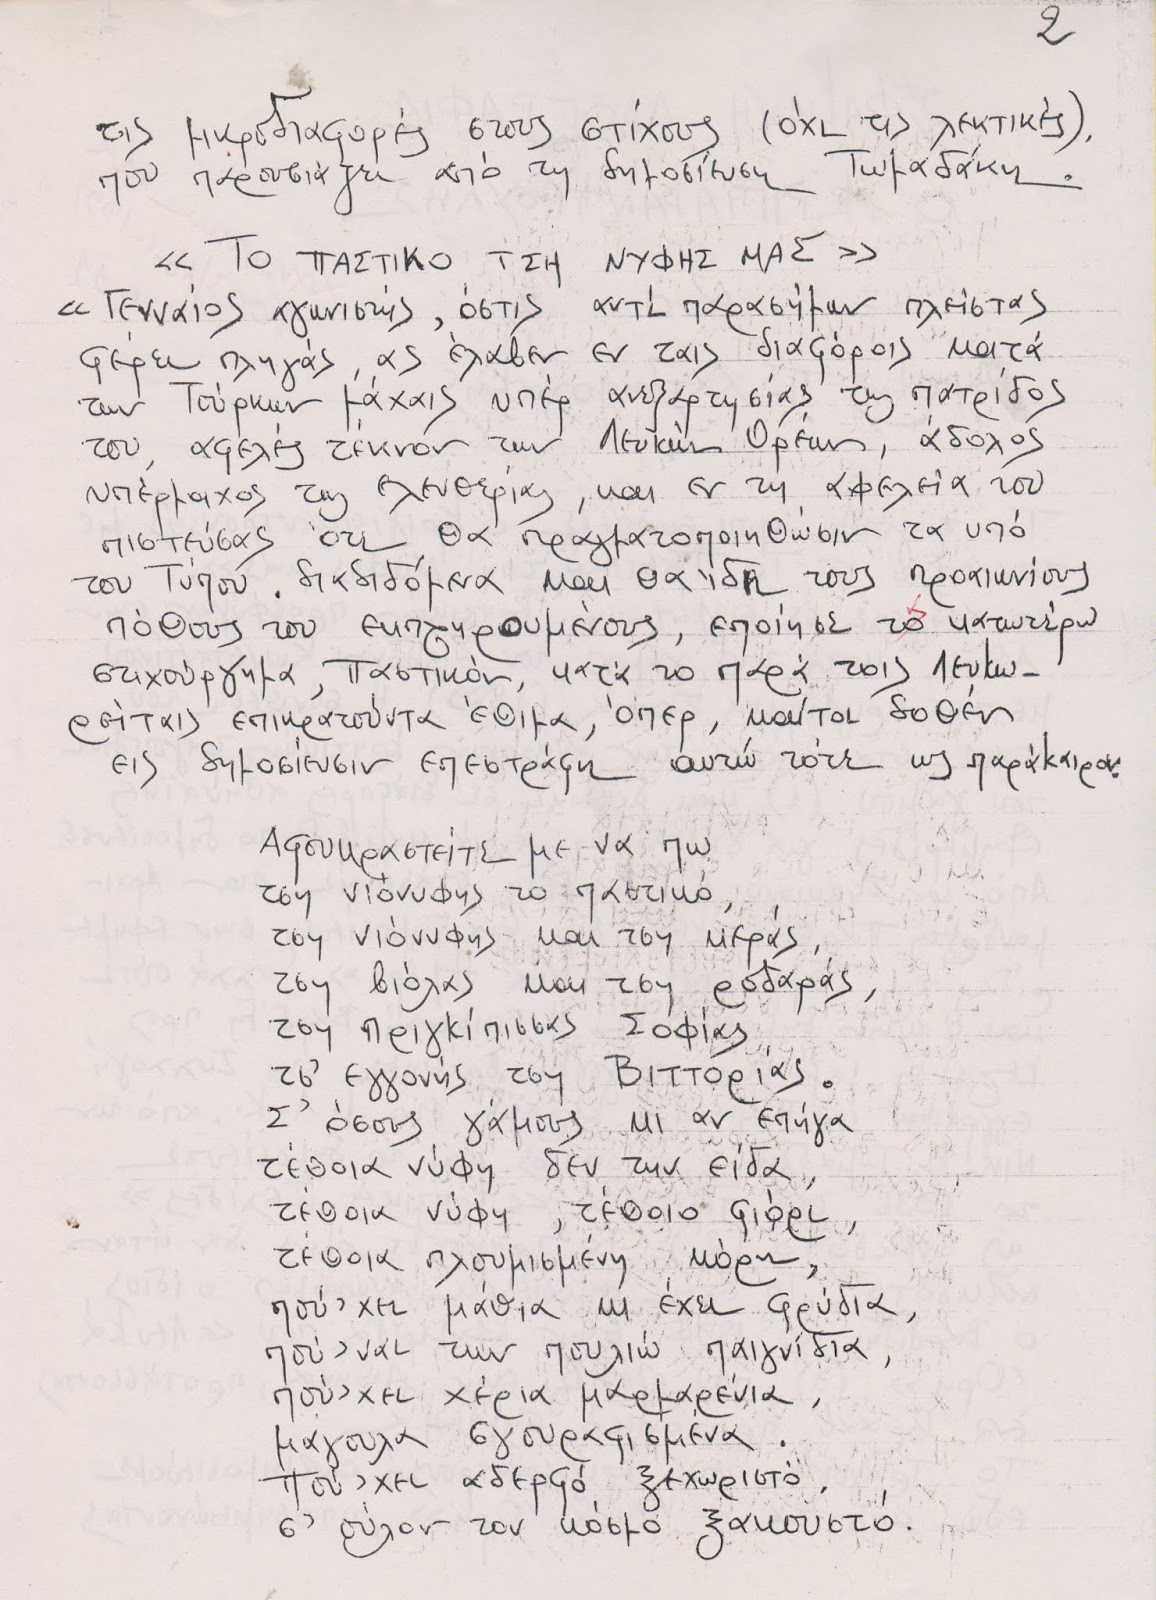 2
τις μικροδιαφορές στους στίχους (όχι τις λεκτικές),
που παρουσιάζει από τη δημοσίευση Τωμαδάκη.
«ΤΟ ΠΑΣΤΙΚΟ ΤΣΗ ΝΥΦΗΣ ΜΑΣ»
«Γενναίος αγωνιστής, όστις αντί παρασήμων πλείστας
φέρει πληγάς, ας έλαβεν εν ταις διαφόροις κατά
των Τούρκων μάχαις υπέρ ανεξαρτησίας της πατρίδος
του, αφελές τέκνον των Λευκών Ορέων, άδολος
υπέρμαχος της ελευθερίας, και εν τη αφελεία του
πιστεύσας ότι θα πραγματοποιηθώσιν τα υπό
του Τύπου. διαδιδόμενα και θα ίδη τους προαιωνίους
πόθους του εκπληρουμένους, εποίησε το κατωτέρω
στιχούργημα, Παστικόν, κατά το παρά τοις Λευκω-
ρείταις επικρατούντα έθιμα, όπερ, καίτοι δοθέν
εις δημοσίευσιν επεστράφη αυτώ τότε ως παράκαιρον.
Αφουκραστείτε με να πω
τση νιόνυφης το παστικό,
τση νιόνυφης και τση κεράς,
τση βιόλας και τση ροδαράς,
τση πριγκίπισσας Σοφίας
τσ' εγγονής τση Βιττορίας.
Σ' όσους γάμους κι αν επήγα
τέθοια νύφη δεν την είδα,
τέθοια νύφη, τέθοιο φιόρι,
τέθοια πλουμισμένη κόρη,
πού'χει μάθια κι έχει φρύδια,
πού'ναι των πουλιώ παιγνίδια,
πού'χει χέρια μαρμαρένια,
μάγουλα σγουραφισμένα.
Πού'χει αδερφό ξεχωριστό,
σ' ούλον τον κόσμο ξακουστό.